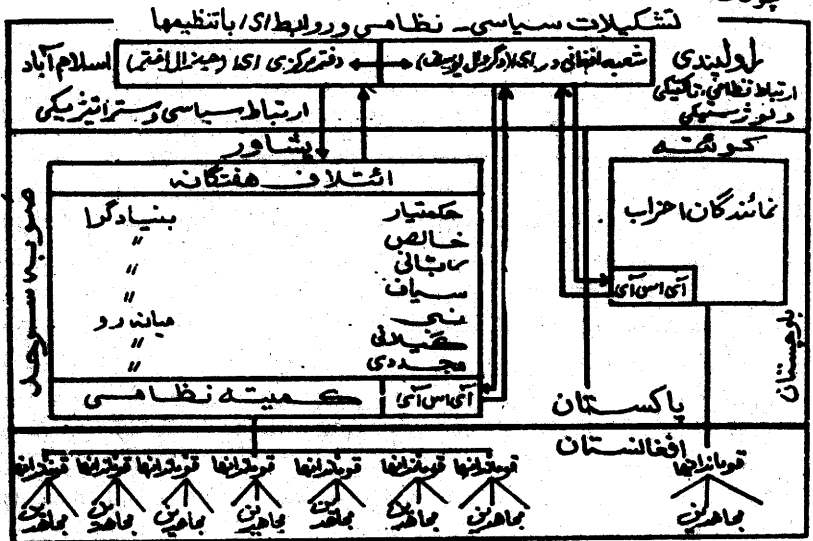 تشکیلات سیاسی - نظامی و روابط ای/ با تنظیمها
راولپندی
شعبه افغانی در ای/ (دگروال یوسف)
دفتر مرکزی ای/ (جنرال اختر)
اسلام آباد
ارتباط نظامی، تاکتیکی و لوژستیکی
ارتباط سیاسی و ستراتیژیکی
کوئته
پشاور
نمائندگان احزاب
آی اس آی
بلوچستان
صوبه سرحد
ائتلاف هفتگانه
حکمتیار بنیادگرا
خالص "
ربانی "
سیاف "
نبی میانه رو
گیلانی "
مجددی "
آی اس آی
کمیته نظامی
پاکستان
افغانستان
قوماندانها
قوماندانها قوماندانها قوماندانها قوماندانها قوماندانها قوماندانها قوماندانها
مجاهدین
مجاهدین مجاهدین مجاهدین مجاهدین مجاهدین مجاهدین مجاهدین